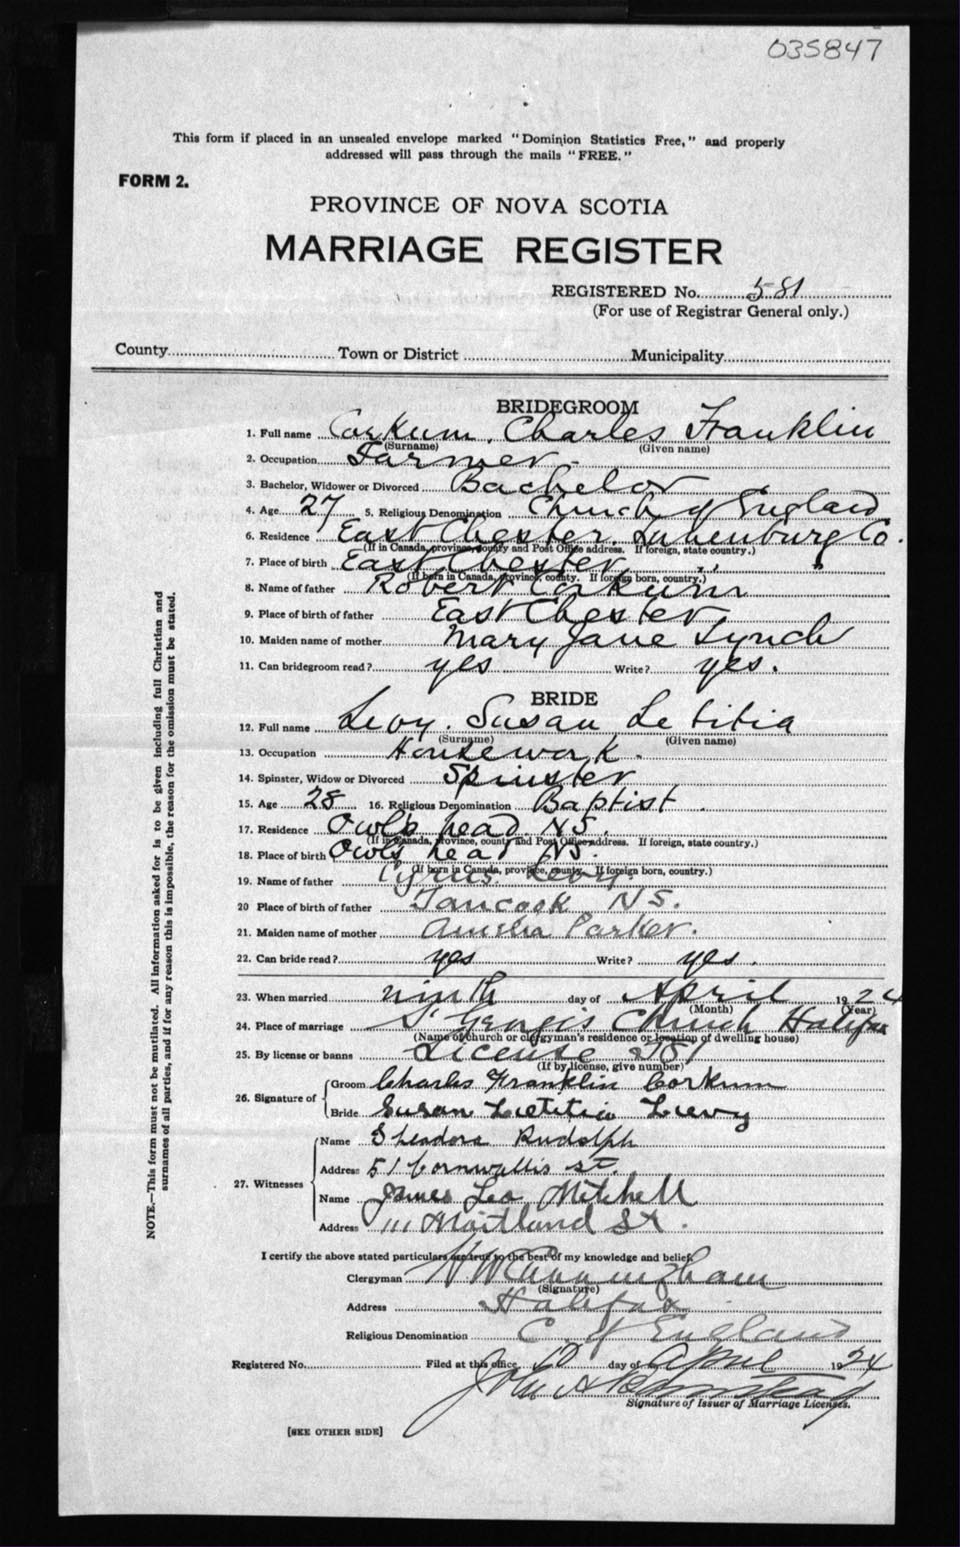 035847
This form if placed in an unsealed envelope marked "Dominion Statistics Free," and properly
addressed will pass through the mails "FREE."
FORM 2.
PROVINCE OF NOVA SCOTIA
MARRIAGE REGISTER
REGISTERED No. 581
(For use of Registrar General only.)
County Town or District Municipality
BRIDEGROOM
1. Full name Corkum, Charles Franklin
(Surname) (Given name)
2. Occupation Farmer
3. Bachelor, Widower or Divorced Bachelor
4. Age 27 5. Religious Denomination Church of England
6. Residence East Chester, Lunenburg Co.
(If in Canada, province, county and Post Office address. If foreign, state country.)
7. Place of birth East Chester " "
(If born in Canada, province, county. If foreign born, country.)
8. Name of father Robert Corkum
9. Place of birth of father East Chester
10. Maiden name of mother Mary Jane Lynch
11. Can bridegroom read? yes Write? yes.
BRIDE
12. Full name Levy. Susan Letitia
(Surname) (Given name)
13. Occupation Housework.
14. Spinster, Widow or Divorced Spinster
15. Age 28 16. Religious Denomination Baptist.
17. Residence Owl's head NS.
(If in Canada, province, county and Post Office address. If foreign, state country.)
18. Place of birth Owl's head NS.
(If born in Canada, province, county. If foreign born, country.)
19. Name of father Cyrus Levy
20 Place of birth of father Tancook NS.
21. Maiden name of mother Amelia Parker.
22. Can bride read? yes Write? yes.
23. When married ninth day of April 1924
(Month) (Year)
24. Place of marriage St Georges Church Halifax
(Name of church or clergyman's residence or location of dwelling house)
25. By license or banns License
(If by license, give number)
26. Signature of Groom Charles Franklin Corkum
Bride Susan Laetitia Levy
27. Witnesses Name Rudolph
Address 51 Cornwallis st.
Name James Leo Mitchell
Address 111 Maitland St.
I certify the above stated particulars are true to the best of my knowledge and belief.
Clergyman H W Cunningham
(Signature)
Address Halifax
Religious Denomination C of England
Registered No. Filed at this office 10 day of April 1924
John A
Signature of Issuer of Marriage Licenses.
[SEE OTHER SIDE]
NOTE.—This form must not be mutilated. All information asked for is to be given including full Christian and
surnames of all parties, and if for any reason this is impossible, the reason for the omission must be stated.